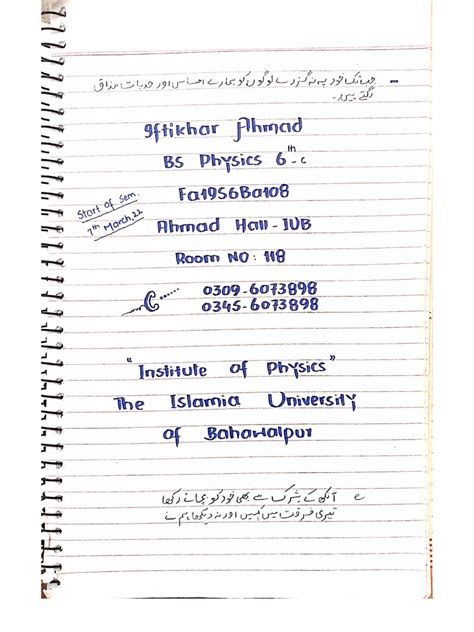 جب تک خود پہ نہ گزرے لوگوں کو ہمارے احساس اور جذبات مذاق
لگتے ہیں۔
Iftikhar Ahmad
BS Physics 6th-c
Fa19S6Ba108
Start of Sem.
7th March,22
Ahmad Hall - IUB
Room NO: 118
0309-6073898
0345-6073898
"Institute of Physics"
The Islamia University
of Bahawalpur
آنکھ کے شرک سے بھی خود کو بچائے رکھا
تیری فرقت میں کہیں اور نہ دیکھا ہم نے